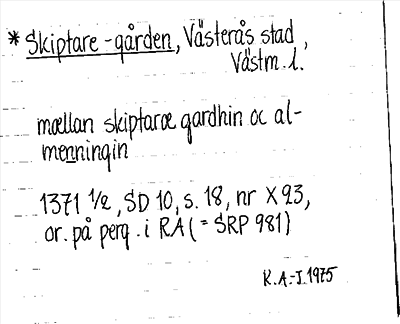 * Skiptare-gården, Västerås stad,
Västm. l.
mællan skiptaræ gardhin oc al-
menningin
1371 1/2, SD 10, s. 18, nr X 93,
or. på perg. i RA (= SRP 981)
R.A.-J. 1975